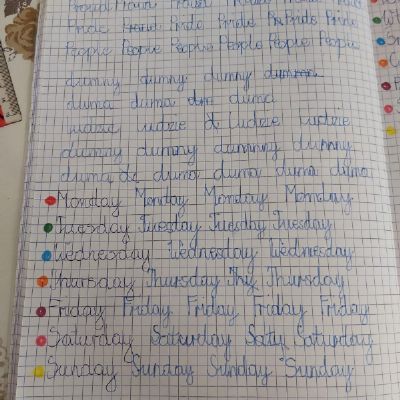 Proud Proud
Pride Proud Pride Pride Pr Pride Pride
People People People People People People
dumny dumny dumny dumnn
duma duma dm duma
ludzie ludzie & Ludzie ludzie
dumny dumny dumnny dumny
duma du duma duma duma duma
Monday Monday Monday Monday
Tuesday Tuesday Tuesday Tuesday
Wednesday Wednesday Wednesday
Thursday Thursday Thy Thursday
Friday Friday Friday Friday Friday
Saturday Saturday Saty Saturday
Sunday Sunday Sunday Sunday